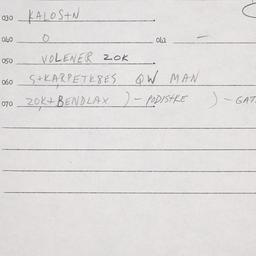 030 KALOS+N
040 O 041 –
050 VOLENER ZOK
060 S+KARPETK8ES QW MAN
070 ZOK+BENDLAX ) – PODISTKE ) – GAT